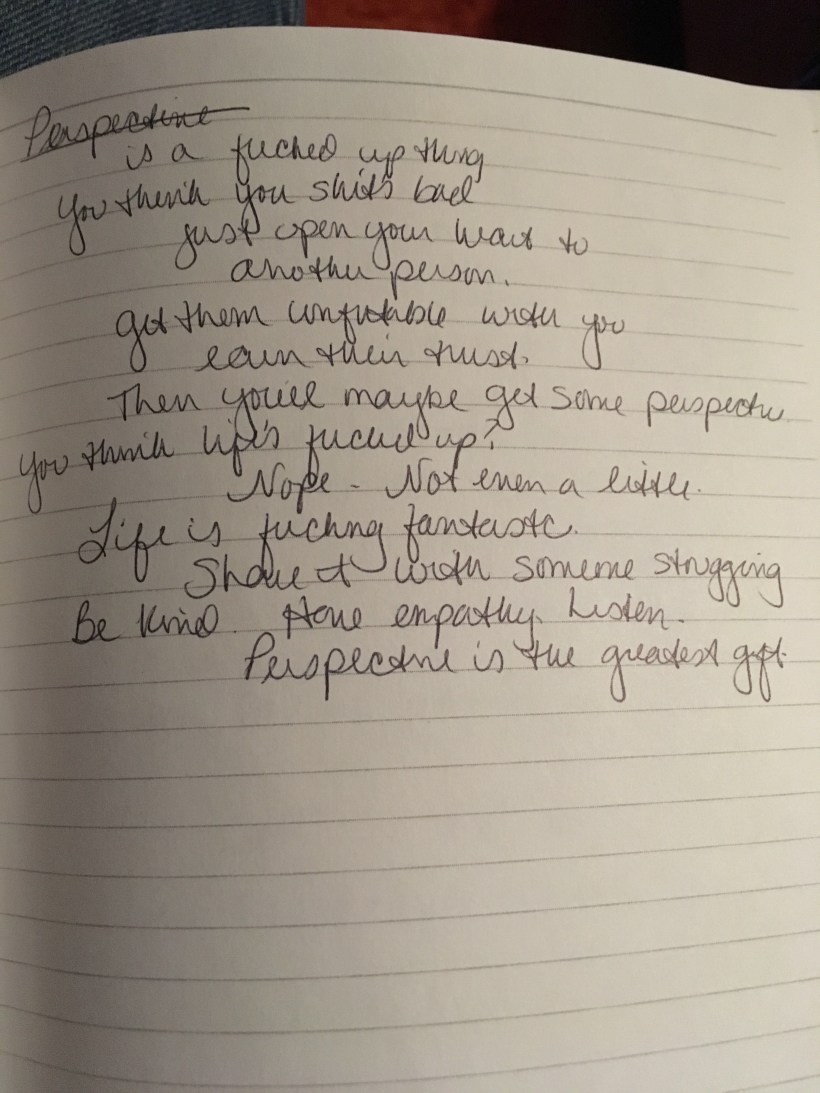 Perspective
is a fucked up thing
You think you shit's bad
just open your heart to
another person.
get them comfortable with you
earn their trust.
Then you'll maybe get some perspective
you think life's fucked up?
Nope - Not even a little.
Life is fucking fantastic.
Share it with someone struggling
Be kind. Have empathy. Listen.
Perspective is the greatest gift.